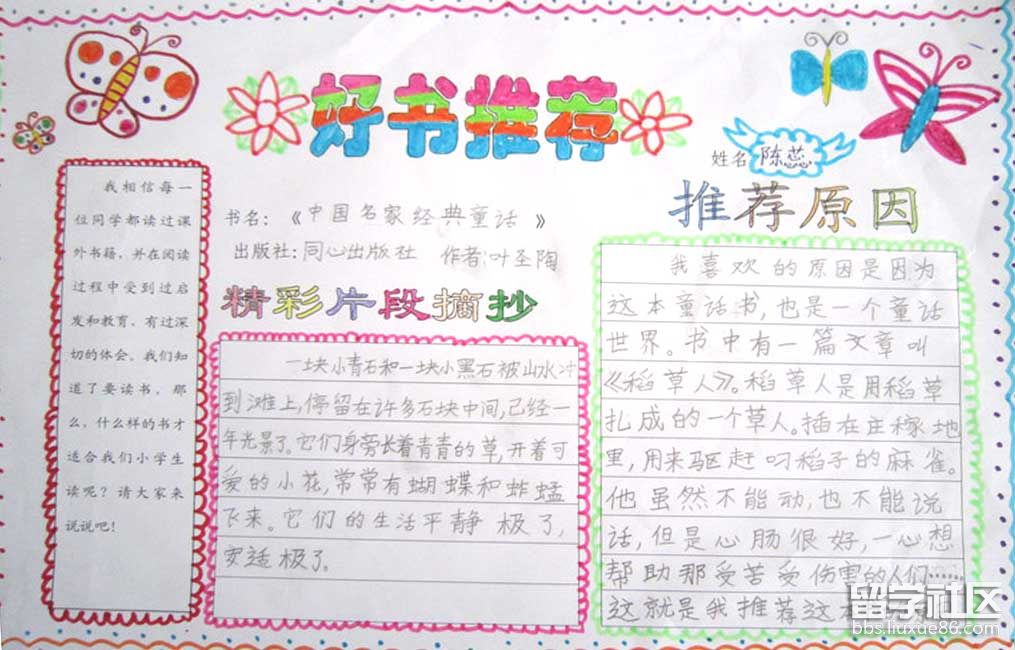 好书推荐
姓名 陈蕊
我相信每一
位同学都读过课
外书籍，并在阅读
过程中受到过启
发和教育、有过深
切的体会。我们知
道了要读书，那
么，什么样的书才
适合我们小学生
读呢？请大家来
说说吧！
书名：《中国名家经典童话》
出版社：同心出版社 作者：叶圣陶
精彩片段摘抄
一块小青石和一块小黑石被山水冲
到滩上，停留在许多石块中间，已经一
年光景了。它们身旁长着青青的草，开着可
爱的小花，常常有蝴蝶和蚱蜢
飞来。它们的生活平静极了，
安适极了。
推荐原因
我喜欢的原因是因为
这本童话书，也是一个童话
世界。书中有一篇文章叫
《稻草人》。稻草人是用稻草
扎成的一个草人。插在庄稼地
里，用来驱赶叼稻子的麻雀。
他虽然不能动，也不能说
话，但是心肠很好，一心想
帮助那受苦受伤害的人们……
这就是我推荐这本
留学社区
bbs.liuxue86.com